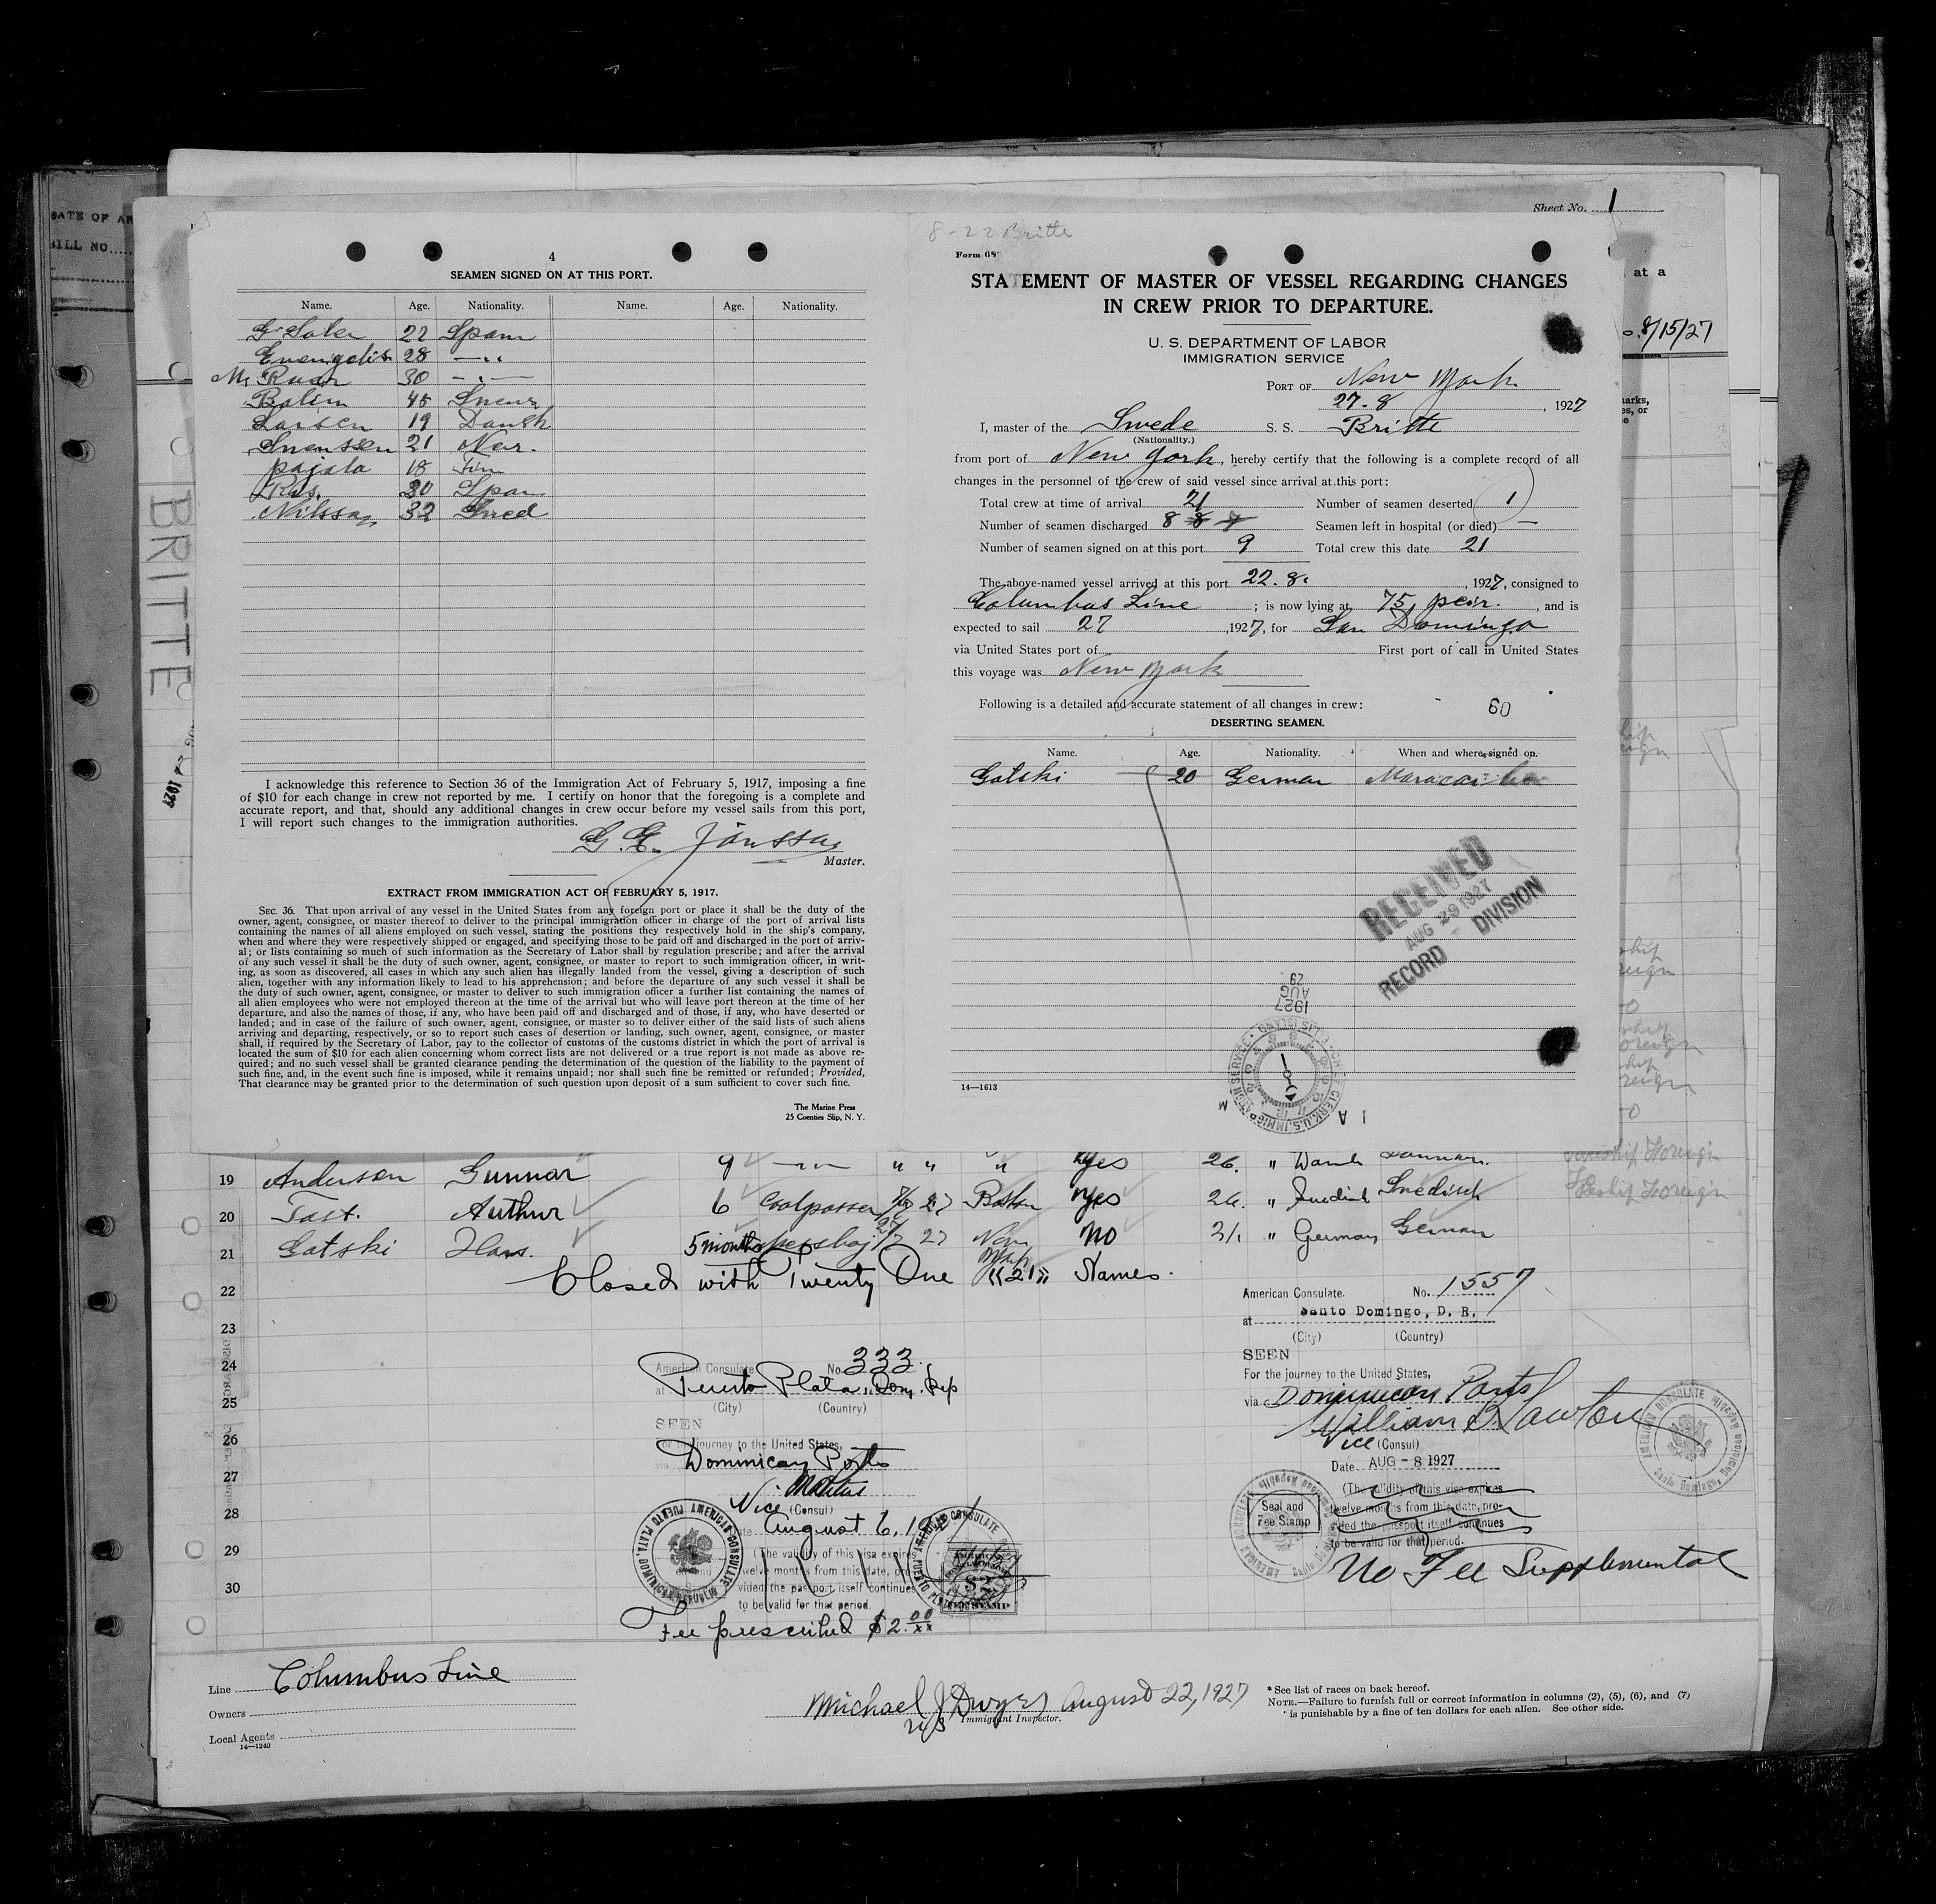 Sheet No. 1
DATE OF AR
BILL NO.
at a
8/15/27
BRITTE
4
SEAMEN SIGNED ON AT THIS PORT.
Name. Age. Nationality. Name. Age. Nationality.
22 Span
28 — " 
30 — " —
19 Dansk
Svenssen 21 Nor.
pajala 18 Fin
30 Span
Nilsson 32 Swed
I acknowledge this reference to Section 36 of the Immigration Act of February 5, 1917, imposing a fine
of $10 for each change in crew not reported by me. I certify on honor that the foregoing is a complete and
accurate report, and that, should any additional changes in crew occur before my vessel sails from this port,
I will report such changes to the immigration authorities.
Master.
EXTRACT FROM IMMIGRATION ACT OF FEBRUARY 5, 1917.
SEC. 36. That upon arrival of any vessel in the United States from any foreign port or place it shall be the duty of the
owner, agent, consignee, or master thereof to deliver to the principal immigration officer in charge of the port of arrival lists
containing the names of all aliens employed on such vessel, stating the positions they respectively hold in the ship's company,
when and where they were respectively shipped or engaged, and specifying those to be paid off and discharged in the port of arriv-
al; or lists containing so much of such information as the Secretary of Labor shall by regulation prescribe; and after the arrival
of any such vessel it shall be the duty of such owner, agent, consignee, or master to report to such immigration officer, in writ-
ing, as soon as discovered, all cases in which any such alien has illegally landed from the vessel, giving a description of such
alien, together with any information likely to lead to his apprehension; and before the departure of any such vessel it shall be
the duty of such owner, agent, consignee, or master to deliver to such immigration officer a further list containing the names of
all alien employees who were not employed thereon at the time of the arrival but who will leave port thereon at the time of her
departure, and also the names of those, if any, who have been paid off and discharged and of those, if any, who have deserted or
landed; and in case of the failure of such owner, agent, consignee, or master so to deliver either of the said lists of such aliens
arriving and departing, respectively, or so to report such cases of desertion or landing, such owner, agent, consignee, or master
shall, if required by the Secretary of Labor, pay to the collector of customs of the customs district in which the port of arrival is
located the sum of $10 for each alien concerning whom correct lists are not delivered or a true report is not made as above re-
quired; and no such vessel shall be granted clearance pending the determination of the question of the liability to the payment of
such fine, and, in the event such fine is imposed, while it remains unpaid; nor shall such fine be remitted or refunded; Provided,
That clearance may be granted prior to the determination of such question upon deposit of a sum sufficient to cover such fine.
The Marine Press
25 Coenties Slip, N. Y.
8-22 Britte
Form 68
STATEMENT OF MASTER OF VESSEL REGARDING CHANGES
IN CREW PRIOR TO DEPARTURE.
U. S. DEPARTMENT OF LABOR
IMMIGRATION SERVICE
PORT OF New York
27. 8, 1927
I, master of the Swede S. S. Britte
(Nationality.)
from port of New York, hereby certify that the following is a complete record of all
changes in the personnel of the crew of said vessel since arrival at this port:
Total crew at time of arrival 21 Number of seamen deserted 1
Number of seamen discharged 8 8 7 Seamen left in hospital (or died) —
Number of seamen signed on at this port 9 Total crew this date 21
The above-named vessel arrived at this port 22. 8., 1927, consigned to
Columbus Line; is now lying at 75, peir., and is
expected to sail 27, 1927, for San Domingo
via United States port of First port of call in United States
this voyage was New York
Following is a detailed and accurate statement of all changes in crew:
60
DESERTING SEAMEN.
Name. Age. Nationality. When and where signed on.
Gatski 20 German Maracaibo
RECEIVED
AUG 29 1927
RECORD DIVISION
1927
AUG
29
14—1613
19 Anderson Gunnar 9 — " — " " " Yes 26. "
20 Arthur 6 Coalpasser Boston Yes 26. " Swedish
21 Gatski Hans. 5 months 27 New York No 21. " German German
22 Closed with Twenty One "21" Names.
23
24
25
26
27
28
29
30
American Consulate. No. 1557
at Santo Domingo, D. R.
(City) (Country)
SEEN
For the journey to the United States,
via Dominican Ports
Vice (Consul)
Date AUG - 8 1927
(The validity of this visa expires
twelve months from this date, pro-
vided the passport itself continues
to be valid for that period.
Seal and
Fee Stamp
No Fee Supplemental
American Consulate No. 333.
at Puerto Plata, Dom. Rep
(City) (Country)
SEEN
For the journey to the United States,
via Dominican Ports
Vice (Consul)
Date August 6, 192
(The validity of this visa expires
twelve months from this date, pro
vided the passport itself continues
to be valid for that period.
Fee prescribed $2.00
Line Columbus Line
Owners
Local Agents
14—1240
Michael J Dwyer August 22, 1927
Immigrant Inspector.
* See list of races on back hereof.
NOTE.—Failure to furnish full or correct information in columns (2), (5), (6), and (7)
is punishable by a fine of ten dollars for each alien. See other side.